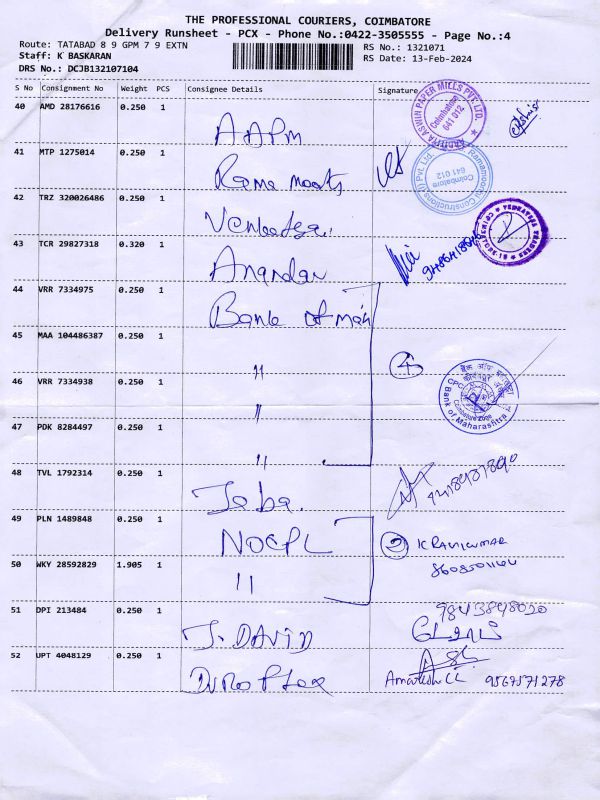 THE PROFESSIONAL COURIERS, COIMBATORE
Delivery Runsheet - PCX - Phone No.:0422-3505555 - Page No.:4
Route: TATABAD 8 9 GPM 7 9 EXTN
RS No.: 1321071
Staff: K BASKARAN
RS Date: 13-Feb-2024
DRS No.: DCJB132107104
S No Consignment No Weight PCS Consignee Details Signature
40 AMD 28176616 0.250 1 AAPM
ADITYA ASWIN PAPER MILLS PVT. LTD. Coimbatore 641 012
41 MTP 1275014 0.250 1 Rama
Ramamoorthy Constructions (I) Pvt. Ltd. Coimbatore 641 012
42 TRZ 320026486 0.250 1
43 TCR 29827318 0.320 1 Anandan
44 VRR 7334975 0.250 1 Bank of Mah
45 MAA 104486387 0.250 1 "
4
46 VRR 7334938 0.250 1 "
Bank of Maharashtra
47 PDK 8284497 0.250 1 "
48 TVL 1792314 0.250 1 Jaba.
49 PLN 1489848 0.250 1 NOCPL
2 K RAVIKUMAR
50 WKY 28592829 1.905 1 "
51 DPI 213484 0.250 1 J. DAVID
9843848050
52 UPT 4048129 0.250 1
9567571278